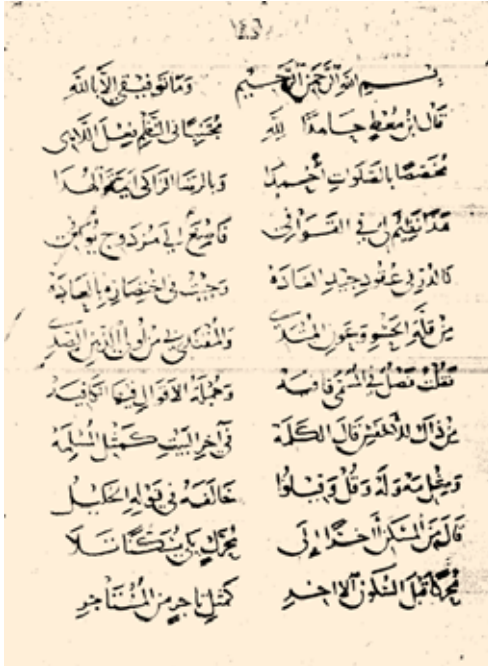 بسم الله الرحمن الرحيم وما توفيقي الا بالله
قال ابن معط حامدا لله مجتنبا في النظم فعل اللاهي
مخصصا بالصلوات أحمدا وبالرضا الزاكي ايمة الهدا
هذا نظيم لي في القوافي فاصغ الى مزدوج
كالدر في عقود جيد الغادة وجيت في اختصاره بالعادة
من قلة الحشو وعون المبتدي من أولي الذهن الصدي
فقلت فصل في المسمى قافيه وجملة الاقوال فيها كافيه
من ذاك للأخفش قال الكلمة في آخر البيت كمثل المسلمه
وقل خالفه في قوله الخليل
قال من المسكن إلى محرك
محركا قبل السكون الاخر كمثل تاجر من المستاجر